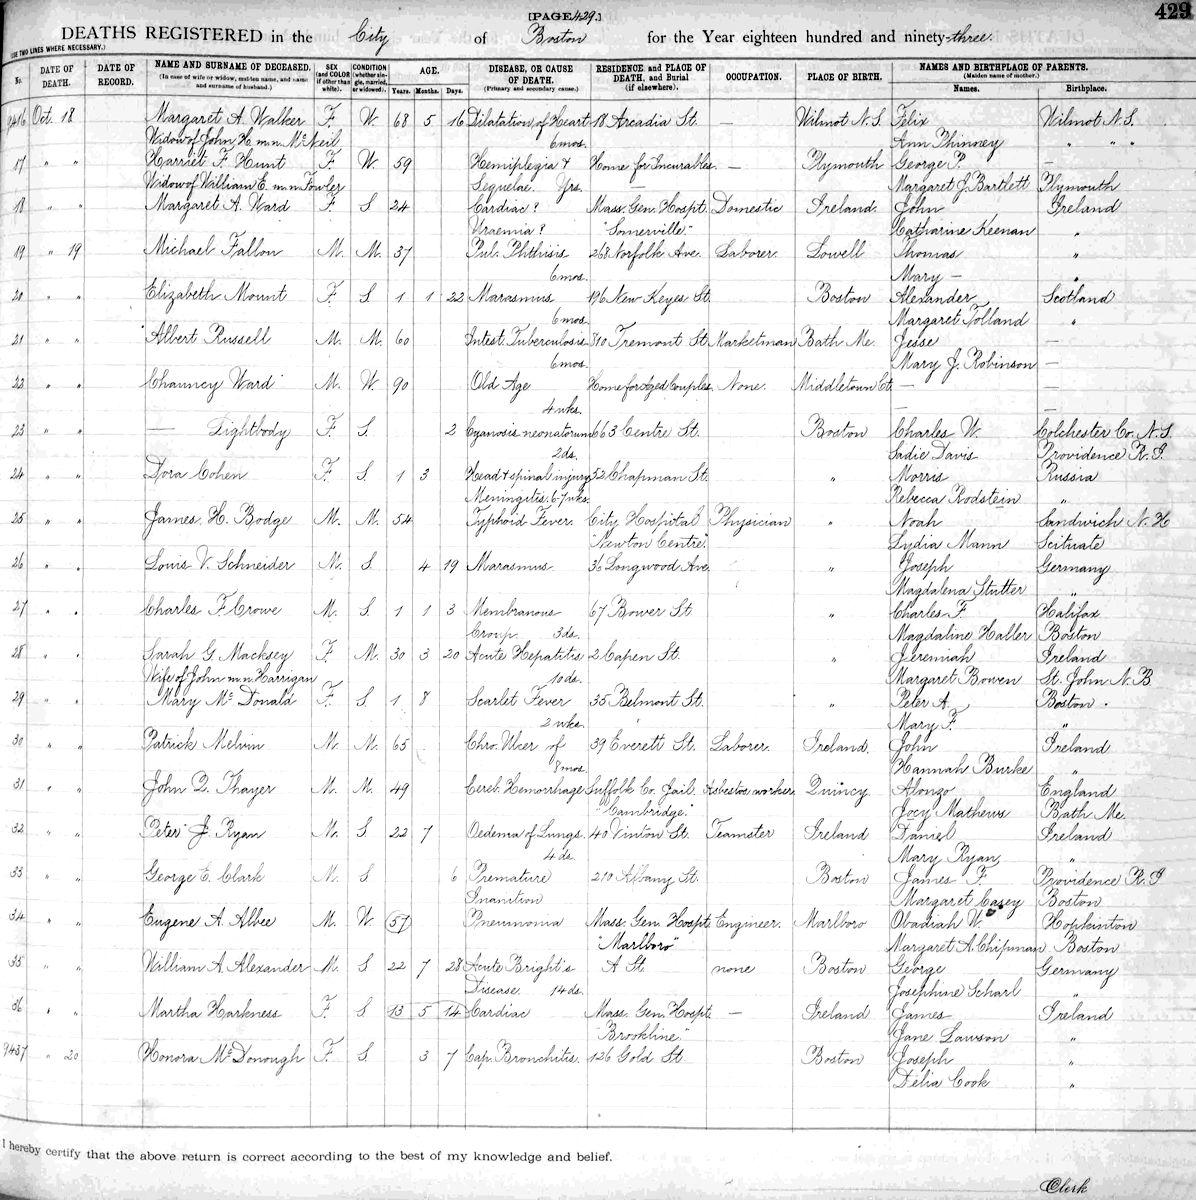 [PAGE 429.]
429
DEATHS REGISTERED in the City of Boston for the Year eighteen hundred and ninety-three.
(USE TWO LINES WHERE NECESSARY.)
No. DATE OF DEATH. DATE OF RECORD. NAME AND SURNAME OF DECEASED. (In case of wife or widow, maiden name, and name and surname of husband.) SEX (and COLOR if other than white). CONDITION (whether single, married, or widowed). AGE. Years. Months. Days. DISEASE, OR CAUSE OF DEATH. (Primary and secondary cause.) RESIDENCE and PLACE OF DEATH, and Burial (if elsewhere). OCCUPATION. PLACE OF BIRTH. NAMES AND BIRTHPLACE OF PARENTS. (Maiden name of mother.) Names. Birthplace.
9416 Oct. 18 Margaret A. Walker F. W. 68 5 16 Dilatation of Heart 18 Arcadia St. — Wilmot N.S. Felix Wilmot N.S.
Widow of John H. m.n. McNeil 6 mos. Ann Phinney " " "
17 " " Harriet F. Hunt F. W. 59 Hemiplegia & Home for Incurables. — Plymouth George P. —
Widow of William E. m.n. Fowler Sequelae. Yrs. — Margaret J. Bartlett Plymouth
18 " " Margaret A. Ward F. S 24 Cardiac? Mass. Gen. Hospt. Domestic Ireland. John Ireland
Uraemia? "Somerville" Catharine Keenan "
19 " 19 Michael Fallon M. M. 37 Pul. Phthisis 268 Norfolk Ave. Laborer. Lowell Thomas "
6 mos. Mary — "
20 " " Elizabeth Mount F. S 1 1 22 Marasmus 196 New Keyes St. Boston Alexander Scotland
6 mos. Margaret Tolland "
21 " " Albert Russell M. M. 60 Intest. Tuberculosis 310 Tremont St. Marketman Bath Me. Jesse —
6 mos. Mary J. Robinson —
22 " " Chauncy Ward M. W. 90 Old Age Home for Aged Couples. None. Middletown Ct. — —
4 wks. — —
23 " " — Tightbody F. S. 2 Cyanosis neonatorum 663 Centre St. Boston Charles W. Colchester Co. N.S.
2 ds. Sadie Davis Providence R.I.
24 " " Dora Cohen F. S. 1 3 Head & spinal injury 52 Chapman St. " Morris Russia
Meningitis. 6-7 wks. Rebecca Rodstein "
25 " " James H. Bodge M. M. 54 Typhoid Fever. City Hospital Physician " Noah Sandwich N.H
"Newton Centre". Lydia Mann Scituate
26 " " Louis V. Schneider M. S 4 19 Marasmus 36 Longwood Ave. " Joseph Germany
Magdalena Stutter "
27 " " Charles F. Crowe M. S 1 1 3 Membranous 67 Bower St " Charles F. Halifax
Croup. 3 ds. Magdaline Haller Boston
28 " " Sarah G. Macksey F. M. 30 3 20 Acute Hepatitis 2 Capen St. " Jeremiah Ireland
Wife of John m.n. Harrigan 10 ds. Margaret Bowen St. John N.B
29 " " Mary McDonald F. S 1 8 Scarlet Fever 35 Belmont St. " Peter A. Boston.
2 wks. Mary F. "
30 " " Patrick Melvin M. M. 65 Chro. Ulcer of 39 Everett St. Laborer. Ireland. John Ireland
8 mos. Hannah Burke "
31 " " John Q. Thayer M. M. 49 Cereb. Hemorrhage Suffolk Co. Jail. Asbestos worker. Quincy Alonzo England
"Cambridge." Mathews Bath Me.
32 " " Peter J. Ryan M. S 22 7 Oedema of Lungs. 40 Vinton St. Teamster Ireland Daniel Ireland
4 ds. Mary Ryan "
33 " " George E. Clark M. S 6 Premature 210 Albany St. Boston James F. Providence R.I
Inanition Margaret Casey Boston
34 " Eugene A. Albee M. W. 57 Pneumonia Mass. Gen. Hospt. Engineer. Marlboro Obadiah W. Hopkinton
"Marlboro" Margaret A. Chipman Boston
35 " " William A. Alexander M. S 22 7 28 Acute Bright's A St. none Boston George Germany
Disease. 14 ds. Josephine Scharl "
36 " " Martha Harkness F. S 13 5 14 Cardiac Mass. Gen. Hospt. — Ireland James Ireland
"Brookline" Jane Lawson "
9437 " 20 Honora McDonough F. S. 3 7 Cap. Bronchitis. 126 Gold St Boston Joseph "
Delia Cook "
I hereby certify that the above return is correct according to the best of my knowledge and belief.
Clerk